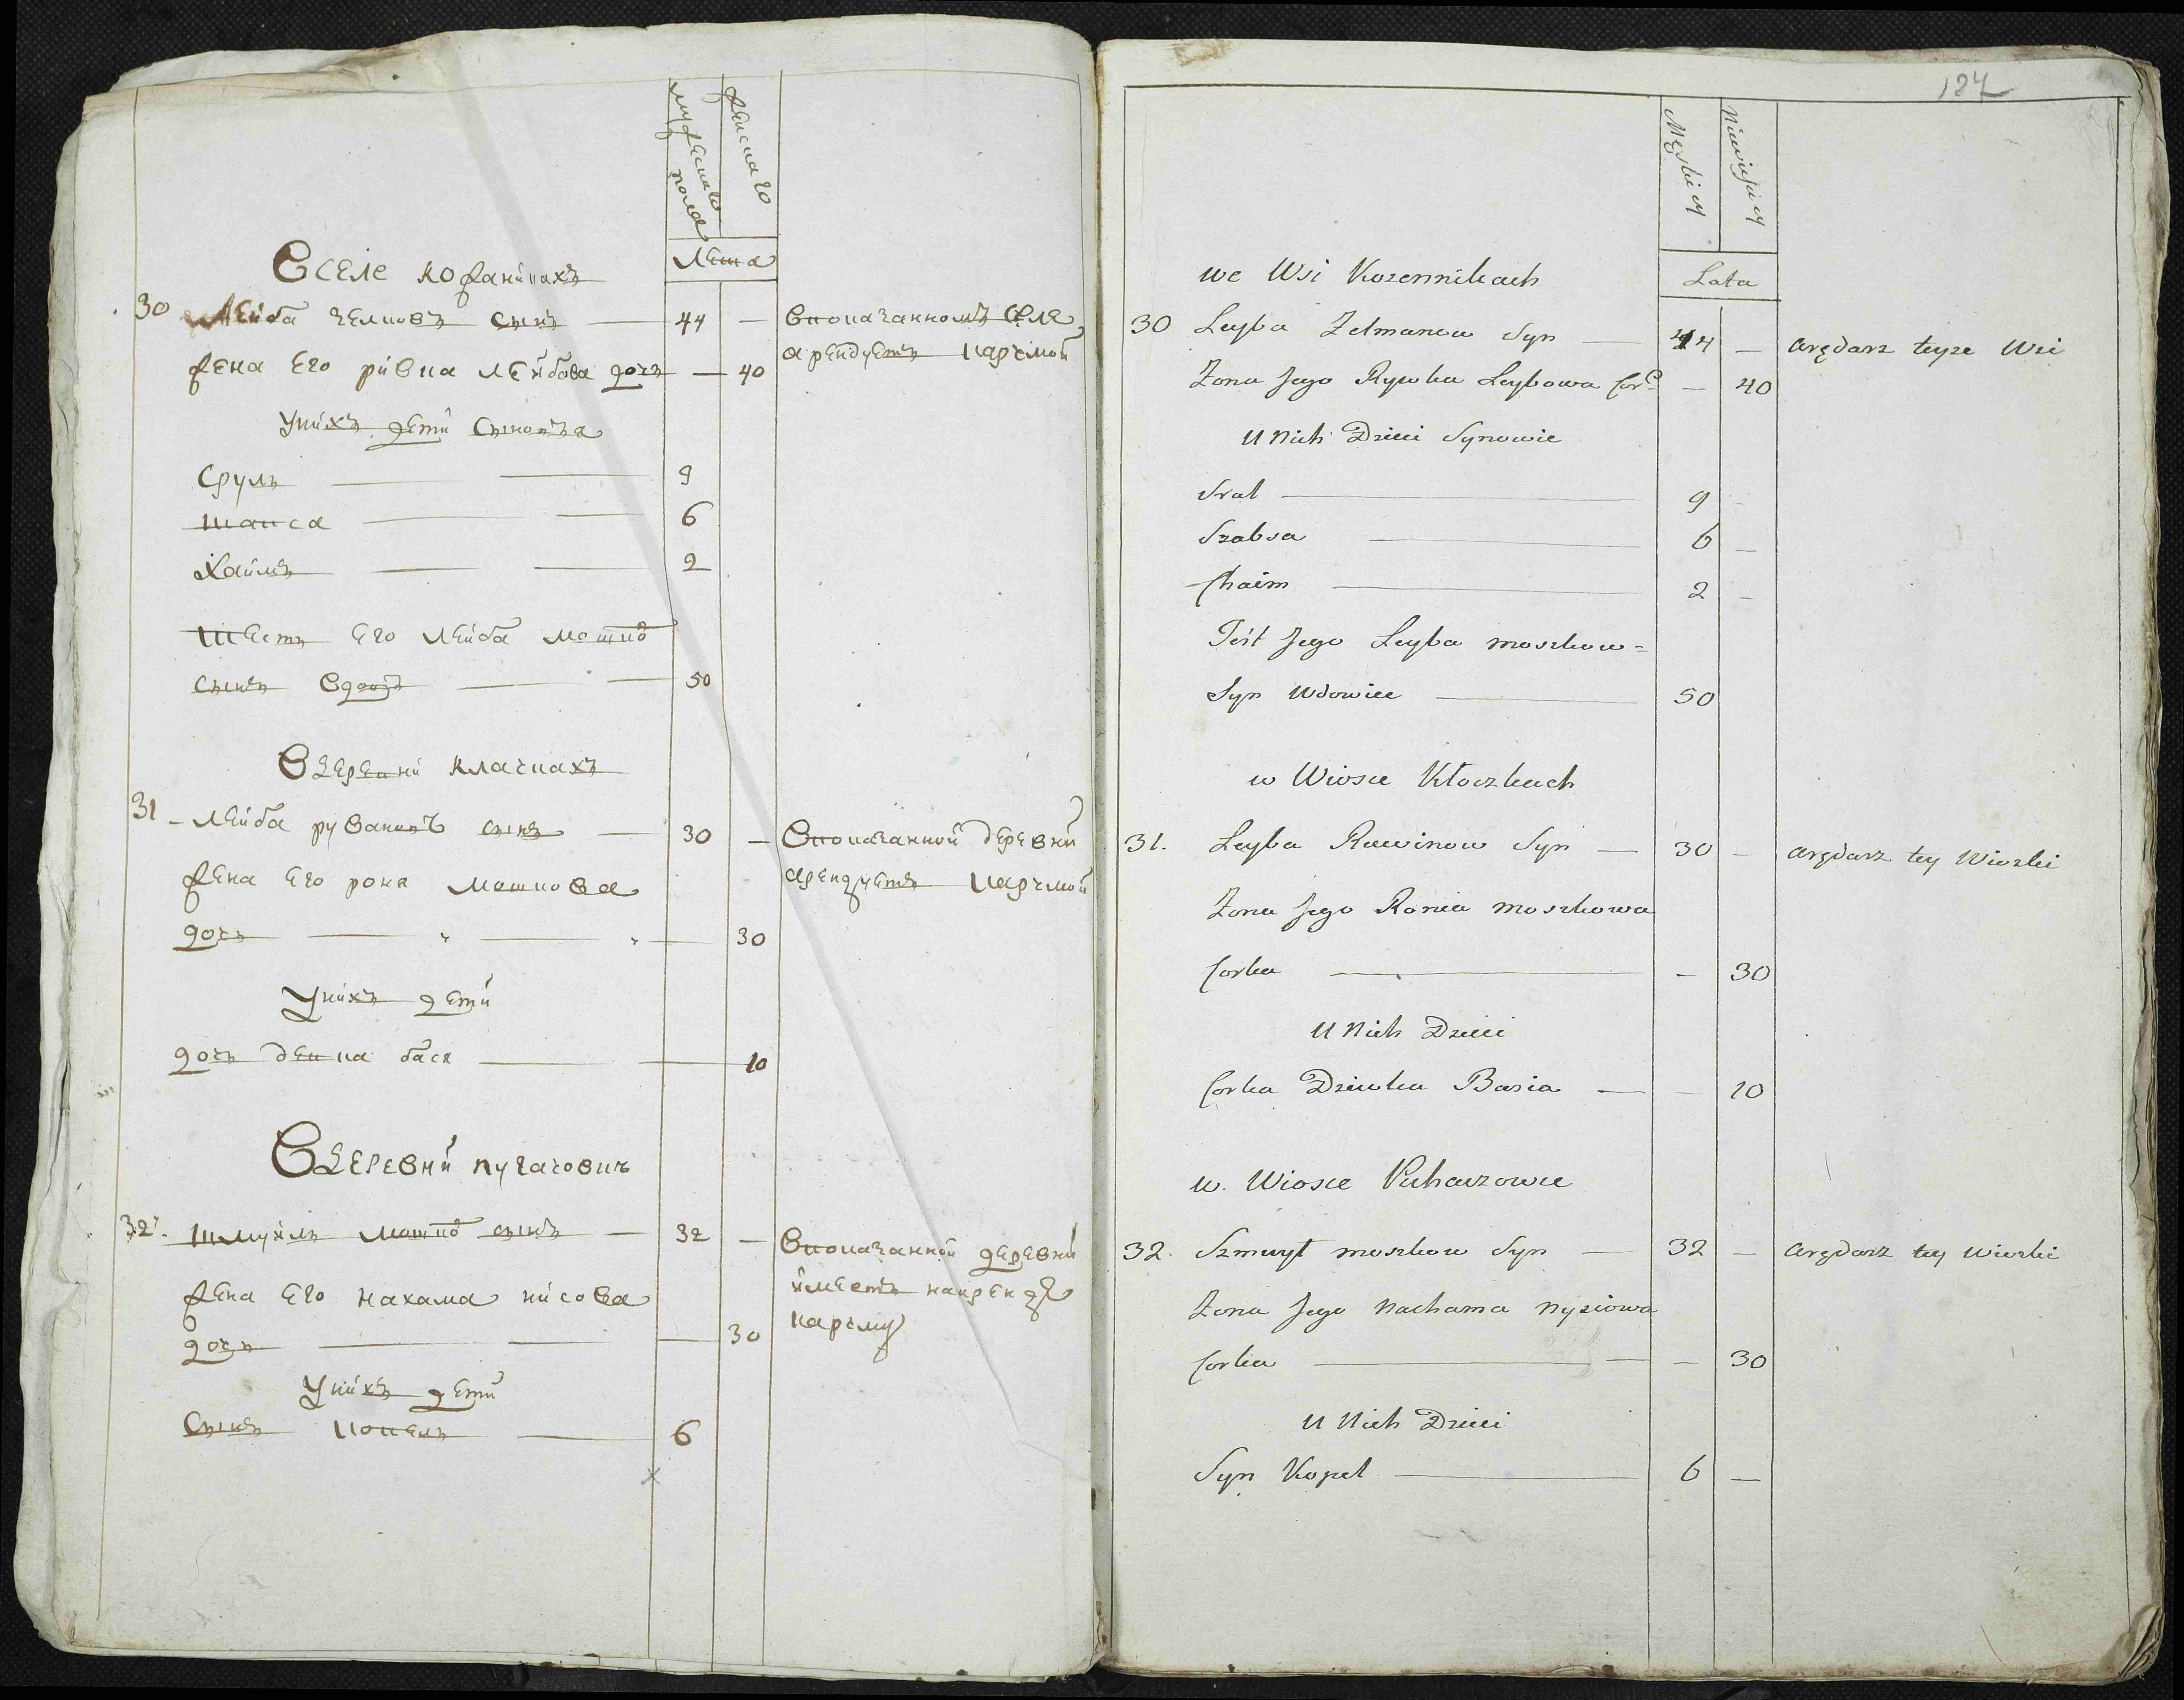 мужеска
пола
женска го
Лета
Вселе кожанпках
30 Лейба зелковъ сынъ — 44 — впоказанномъ селе
арендуетъ карчмой
жена его ривка лейбова дочь — 40
Унихъ дети сыновья
Сруль — 9
шапса — 6
Хаимъ — 2
тесть его лейба мошко
сынъ вдовъ — 50
Вдеревни клачкахъ
31 лейба рувановъ сынъ — 30 — Впоказанной деревни
арендуетъ карчмой
жена его роня мошкова
дочь — 30
Унихъ дети
дочь девка бася — 10
Вдеревни пугачовки
32. шмуйлъ мошко сынъ — 32 — Впоказанной деревни
имеетъ наренде
карчму
жена его нахама нисова
дочь — 30
Унихъ дети
Сынъ копель — 6
184
Męskiey
Niewieściey
Lata
we Wsi Kozennikach
30 Leyba Zelmanow Syn — 44 — arędarz teyze Wsi
Zona Jego Rywka Leybowa Corka — 40
U Nich Dzieci Synowie
Srul — 9 —
Szabsa — 6 —
Chaim — 2 —
Teśt Jego Leyba moszkow=
Syn Wdowiec — 50
w Wiosce Kłoczkach
31. Leyba Ruwinow Syn — 30 — arędarz tey Wioski
Zona Jego Ronia moszkowa
Corka — — 30
U Nich Dzieci
Corka Dziewka Basia — — 10
w. Wiosce Puhaczowce
32. Szmuyl moszkow Syn — 32 — arędarz tey wioski
Zona Jego Nachama Nysiowa
Corka — — 30
U Nich Dzieci
Syn Kopel — 6 —